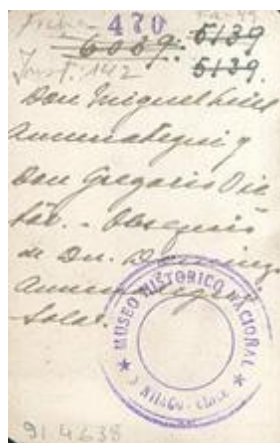 470
6039. 5139
Inst. 142 5139.
Don Miguel Luis
Amunátegui y
Don Gregorio Víc
tor. - Obsequio
de Dn. Domingo
Amunátegui
Solar.
MUSEO HISTORICO NACIONAL
SANTIAGO - CHILE
91.4638